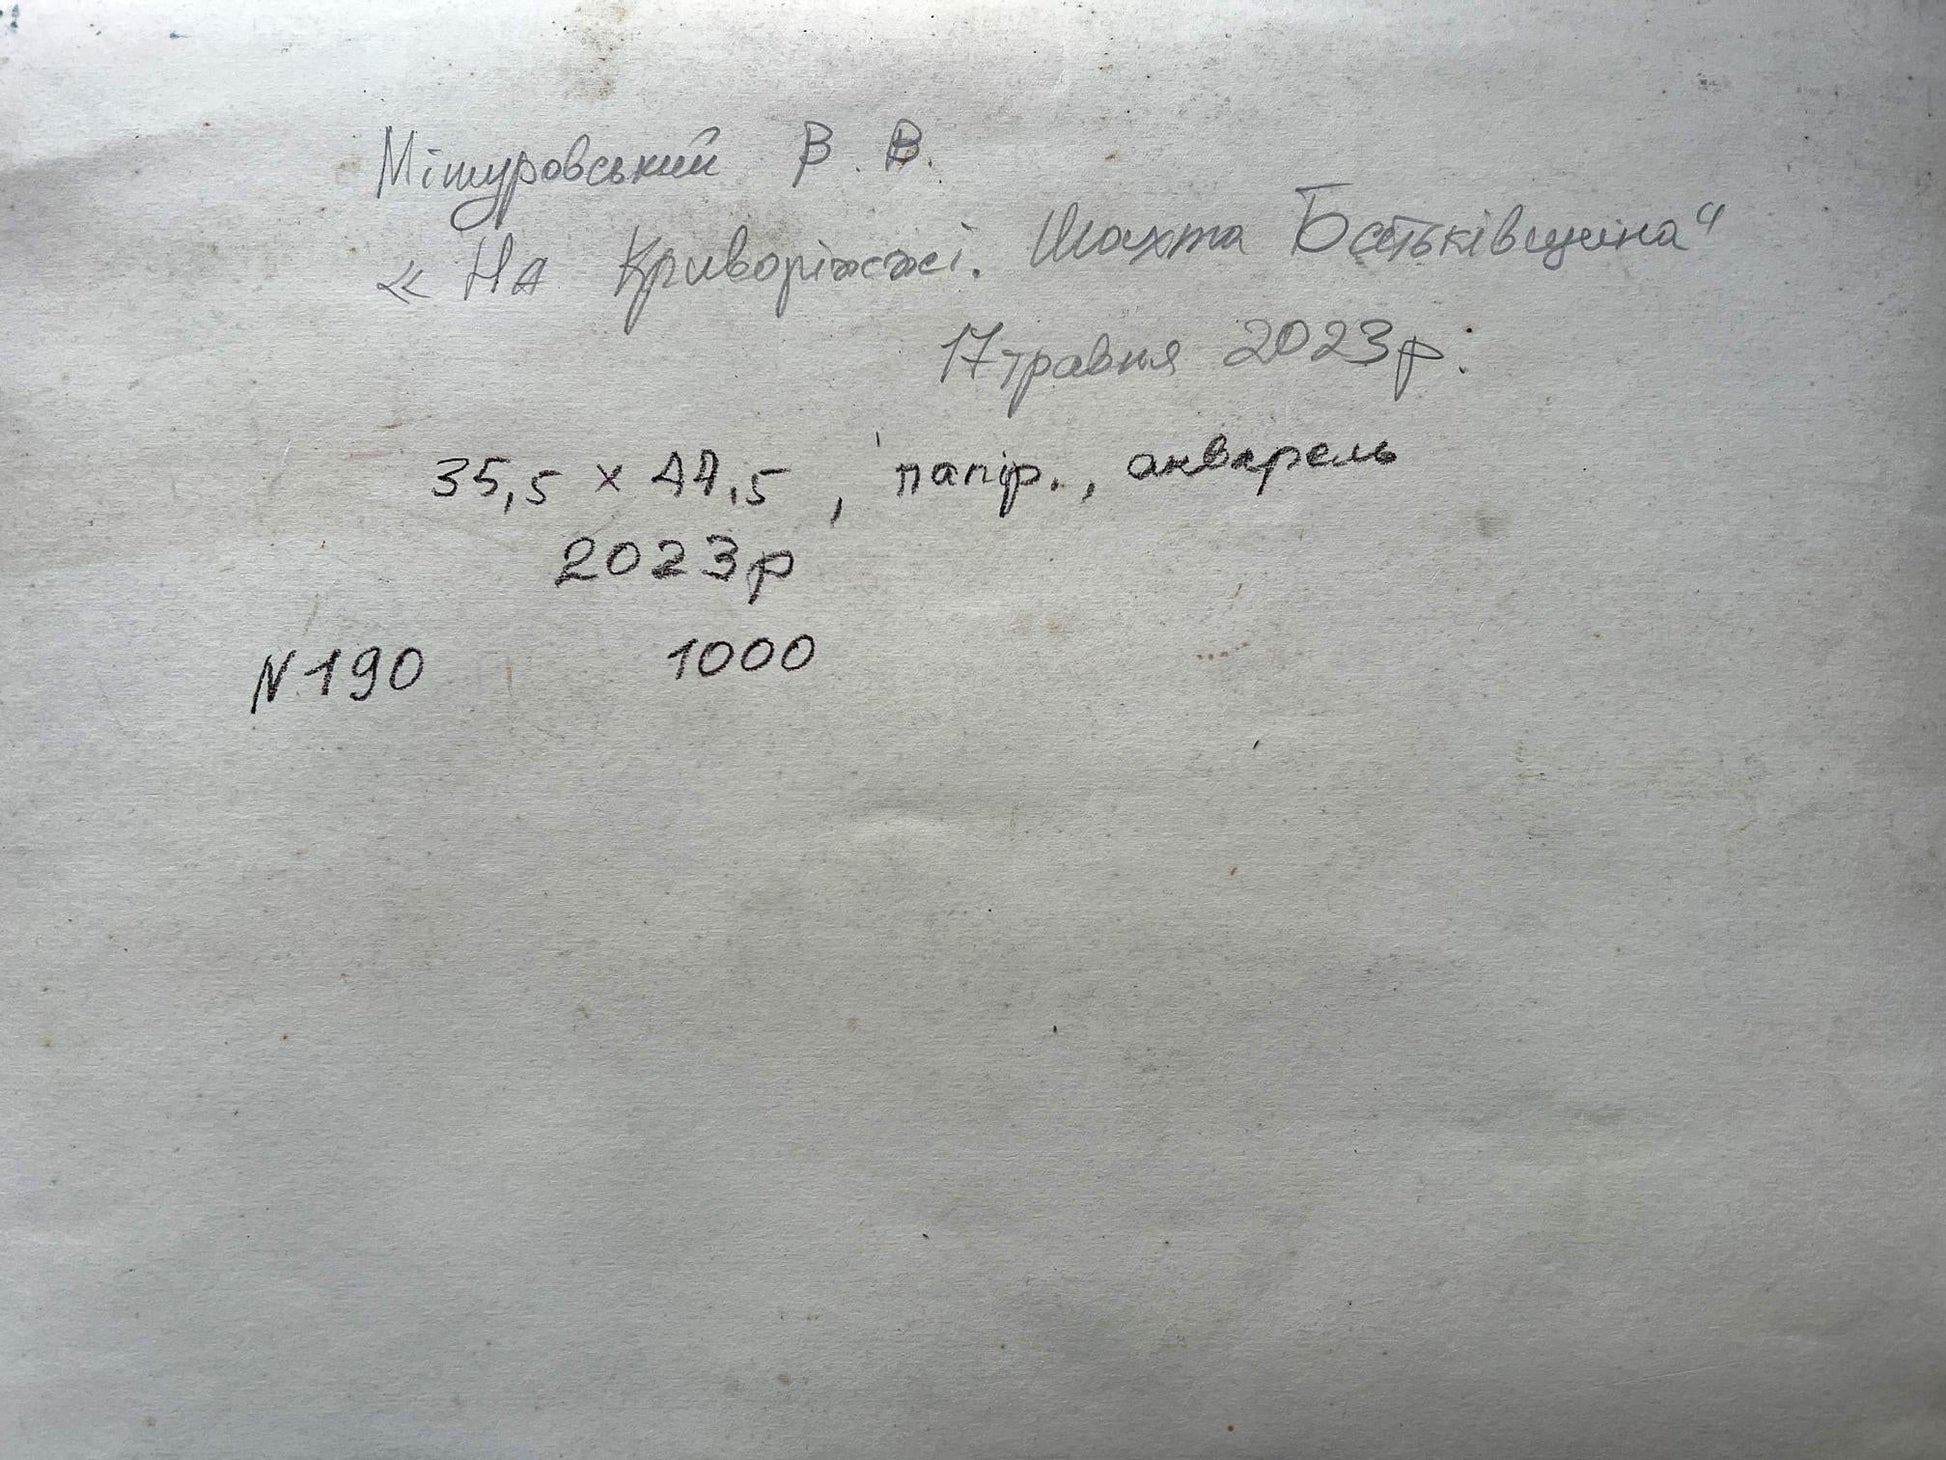 Мітуровський В. В.
« На Криворіжжі. Шахта Батьківщина"
17 травня 2023р.
35,5 x 44,5 , папір., акварель
2023р
N 190 1000